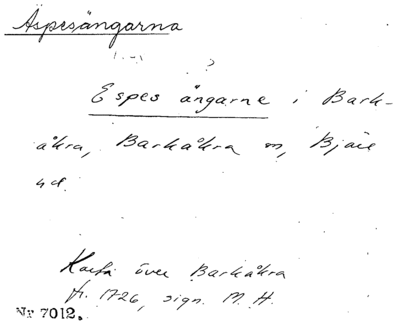 Äspesängarna
?
Espes ängarne i Bark-
åkra, Barkåkra sn, Bjäre
hd.
Karta över Barkåkra
fr. 1726, sign. M. H.
Nr 7012.